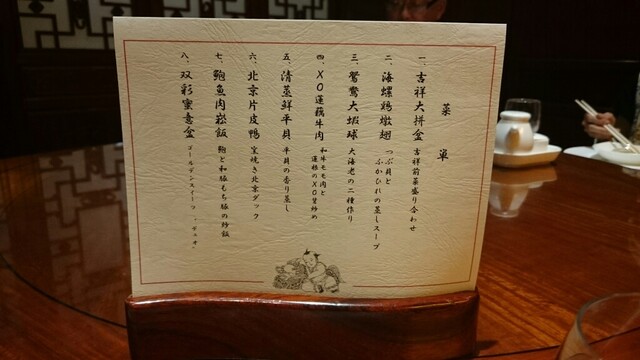 菜 単
一、吉祥大拼盆 吉祥前菜盛り合わせ
二、海螺鶏燉翅 つぶ貝と
ふかひれの蒸しスープ
三、鴛鴦大蝦球 大海老の二種作り
四、XO蓮藕牛肉 和牛モモ肉と
蓮根のXO醤炒め
五、清蒸鮮平貝 平貝の香り蒸し
六、北京片皮鴨 窯焼き北京ダック
七、鮑魚肉崧飯 鮑と和豚もち豚の炒飯
八、双彩蜜意盆 ゴールデンスイーツ